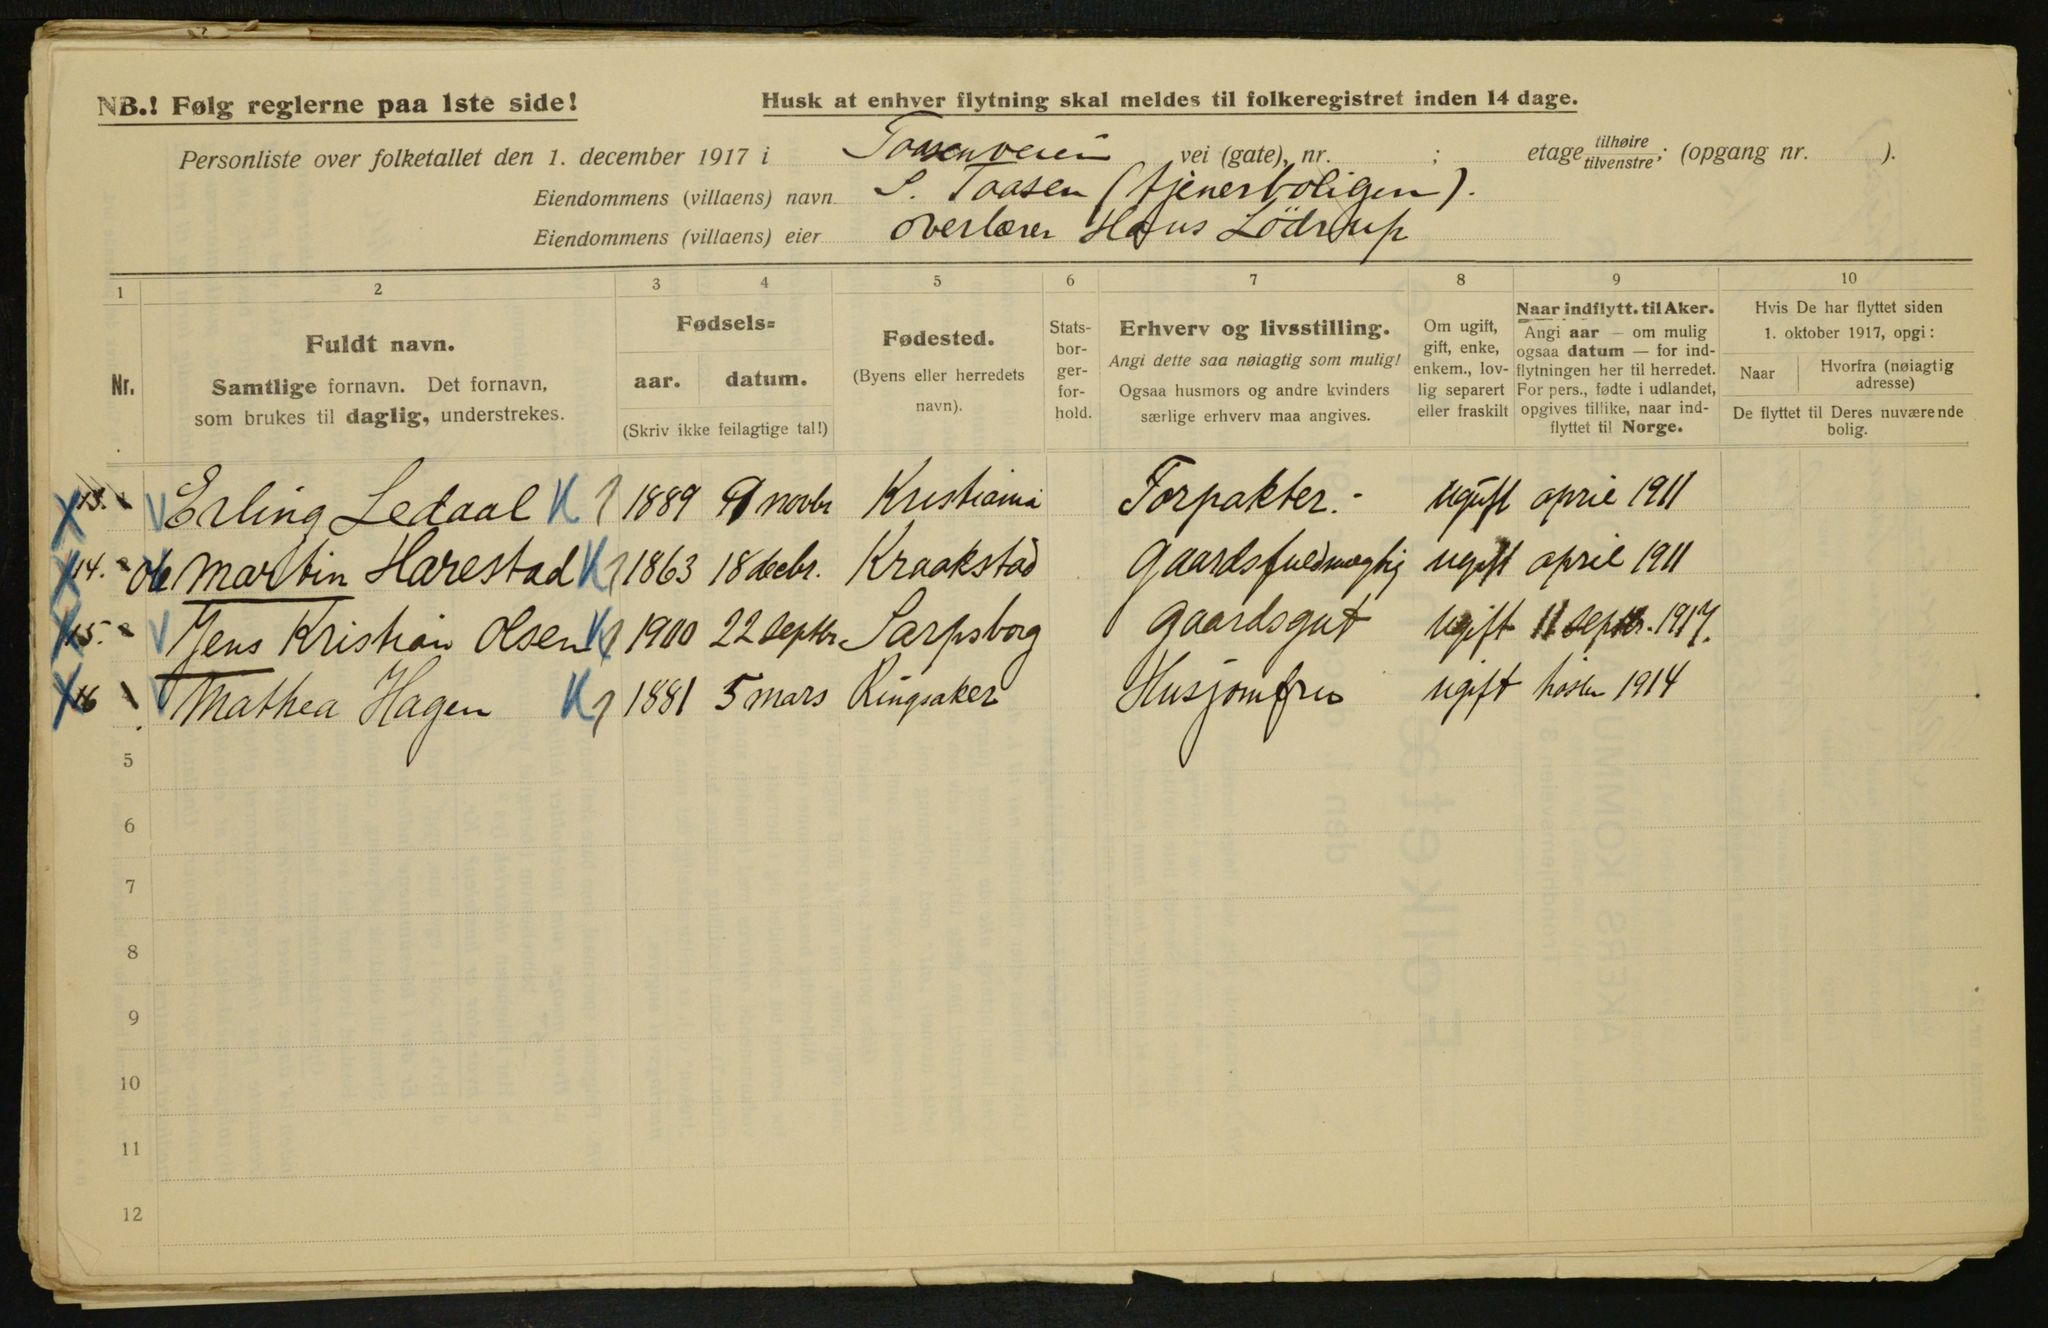 NB.! Følg reglerne paa 1ste side!
Husk at enhver flytning skal meldes til folkeregistret inden 14 dage.
Personliste over folketallet den 1. december 1917 i Taasenveien vei (gate), nr. ; etage tilhøire tilvenstre; (opgang nr. ).
Eiendommens (villaens) navn S. Taasen (tjenerboligen).
Eiendommens (villaens) eier overlærer Hans Lödrup
1 2 3 4 5 6 7 8 9 10
Nr.
Fuldt navn.
Samtlige fornavn. Det fornavn,
som brukes til daglig, understrekes.
Fødsels=
aar. datum.
(Skriv ikke feilagtige tal!)
Fødested.
(Byens eller herredets
navn).
Stats-
bor-
ger-
for-
hold.
Erhverv og livsstilling.
Angi dette saa nøiagtig som mulig!
Ogsaa husmors og andre kvinders
særlige erhverv maa angives.
Om ugift,
gift, enke,
enkem., lov-
lig separert
eller fraskilt
Naar indflytt. til Aker.
Angi aar — om mulig
ogsaa datum — for ind-
flytningen her til herredet.
For pers., fødte i udlandet,
opgives tillike, naar ind-
flyttet til Norge.
Hvis De har flyttet siden
1. oktober 1917, opgi:
Naar
Hvorfra (nøiagtig
adresse)
De flyttet til Deres nuværende
bolig.
X 13. V Erling Ledaal K 1889 9 novbr Kristiania Forpakter.- ugift april 1911
X 14. Ole Martin Harestad K 1863 18 decbr. Kraakstad gaardsfuldmægtig ugift april 1911
X 15. V Jens Kristian Olsen K 1900 22 septbr Sarpsborg gaardsgut ugift 11 septbr. 1917.
X 16 V Mathea Hagen K 1881 5 mars Ringsaker Husjomfru ugift høsten 1914
5
6
7
8
9
10
11
12